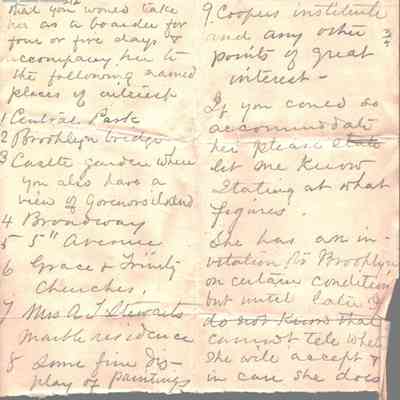 that you would take
her as a boarder for
four or five days &
accompany her to
the following named
places of interest
1 Central Park
2 Brooklyn bridge
3 Castle garden where
you also have a
view of Governors island
4 Broadway
5 5" Avenue
6 Grace & Trinity
Churches.
7 Mrs A. T. Stewarts
marble residence
8 Some fine dis-
play of paintings
9. Coopers institute
and any other
points of great
interest -
If you could so
accommodate
her please state
let me know
Stating at what
figures.
She has an in-
vitation to Brooklyn
on certain condition
but until later I
do not know that
cannot tele when
she will accept &
in case she does